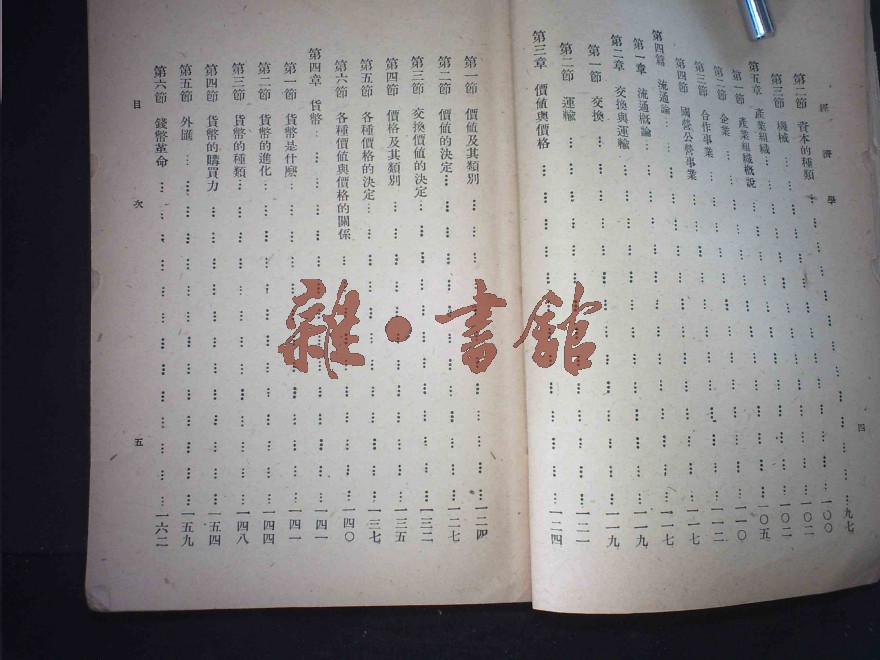 經濟學 四
第二節 資本的種類……九七
第三節 機械……一〇〇
第五章 產業組織……一〇二
第一節 產業組織概說……一〇二
第二節 企業……一〇五
第三節 合作事業……一一〇
第四節 國營公營事業……一一二
第四篇 流通論……一一七
第一章 流通概論……一一七
第二章 交換與運輸……一一九
第一節 交換……一一九
第二節 運輸……一二一
第三章 價值與價格……一二四
第一節 價值及其類別……一二四
第二節 價值的決定……一二七
第三節 交換價值的決定……一三二
第四節 價格及其類別……一三五
第五節 各種價格的決定……一三七
第六節 各種價值與價格的關係……一四〇
第四章 貨幣……一四一
第一節 貨幣是什麼……一四一
第二節 貨幣的進化……一四四
第三節 貨幣的種類……一四八
第四節 貨幣的購買力……一五四
第五節 外匯……一五九
第六節 錢幣革命……一六二
目次 五
雜·書館